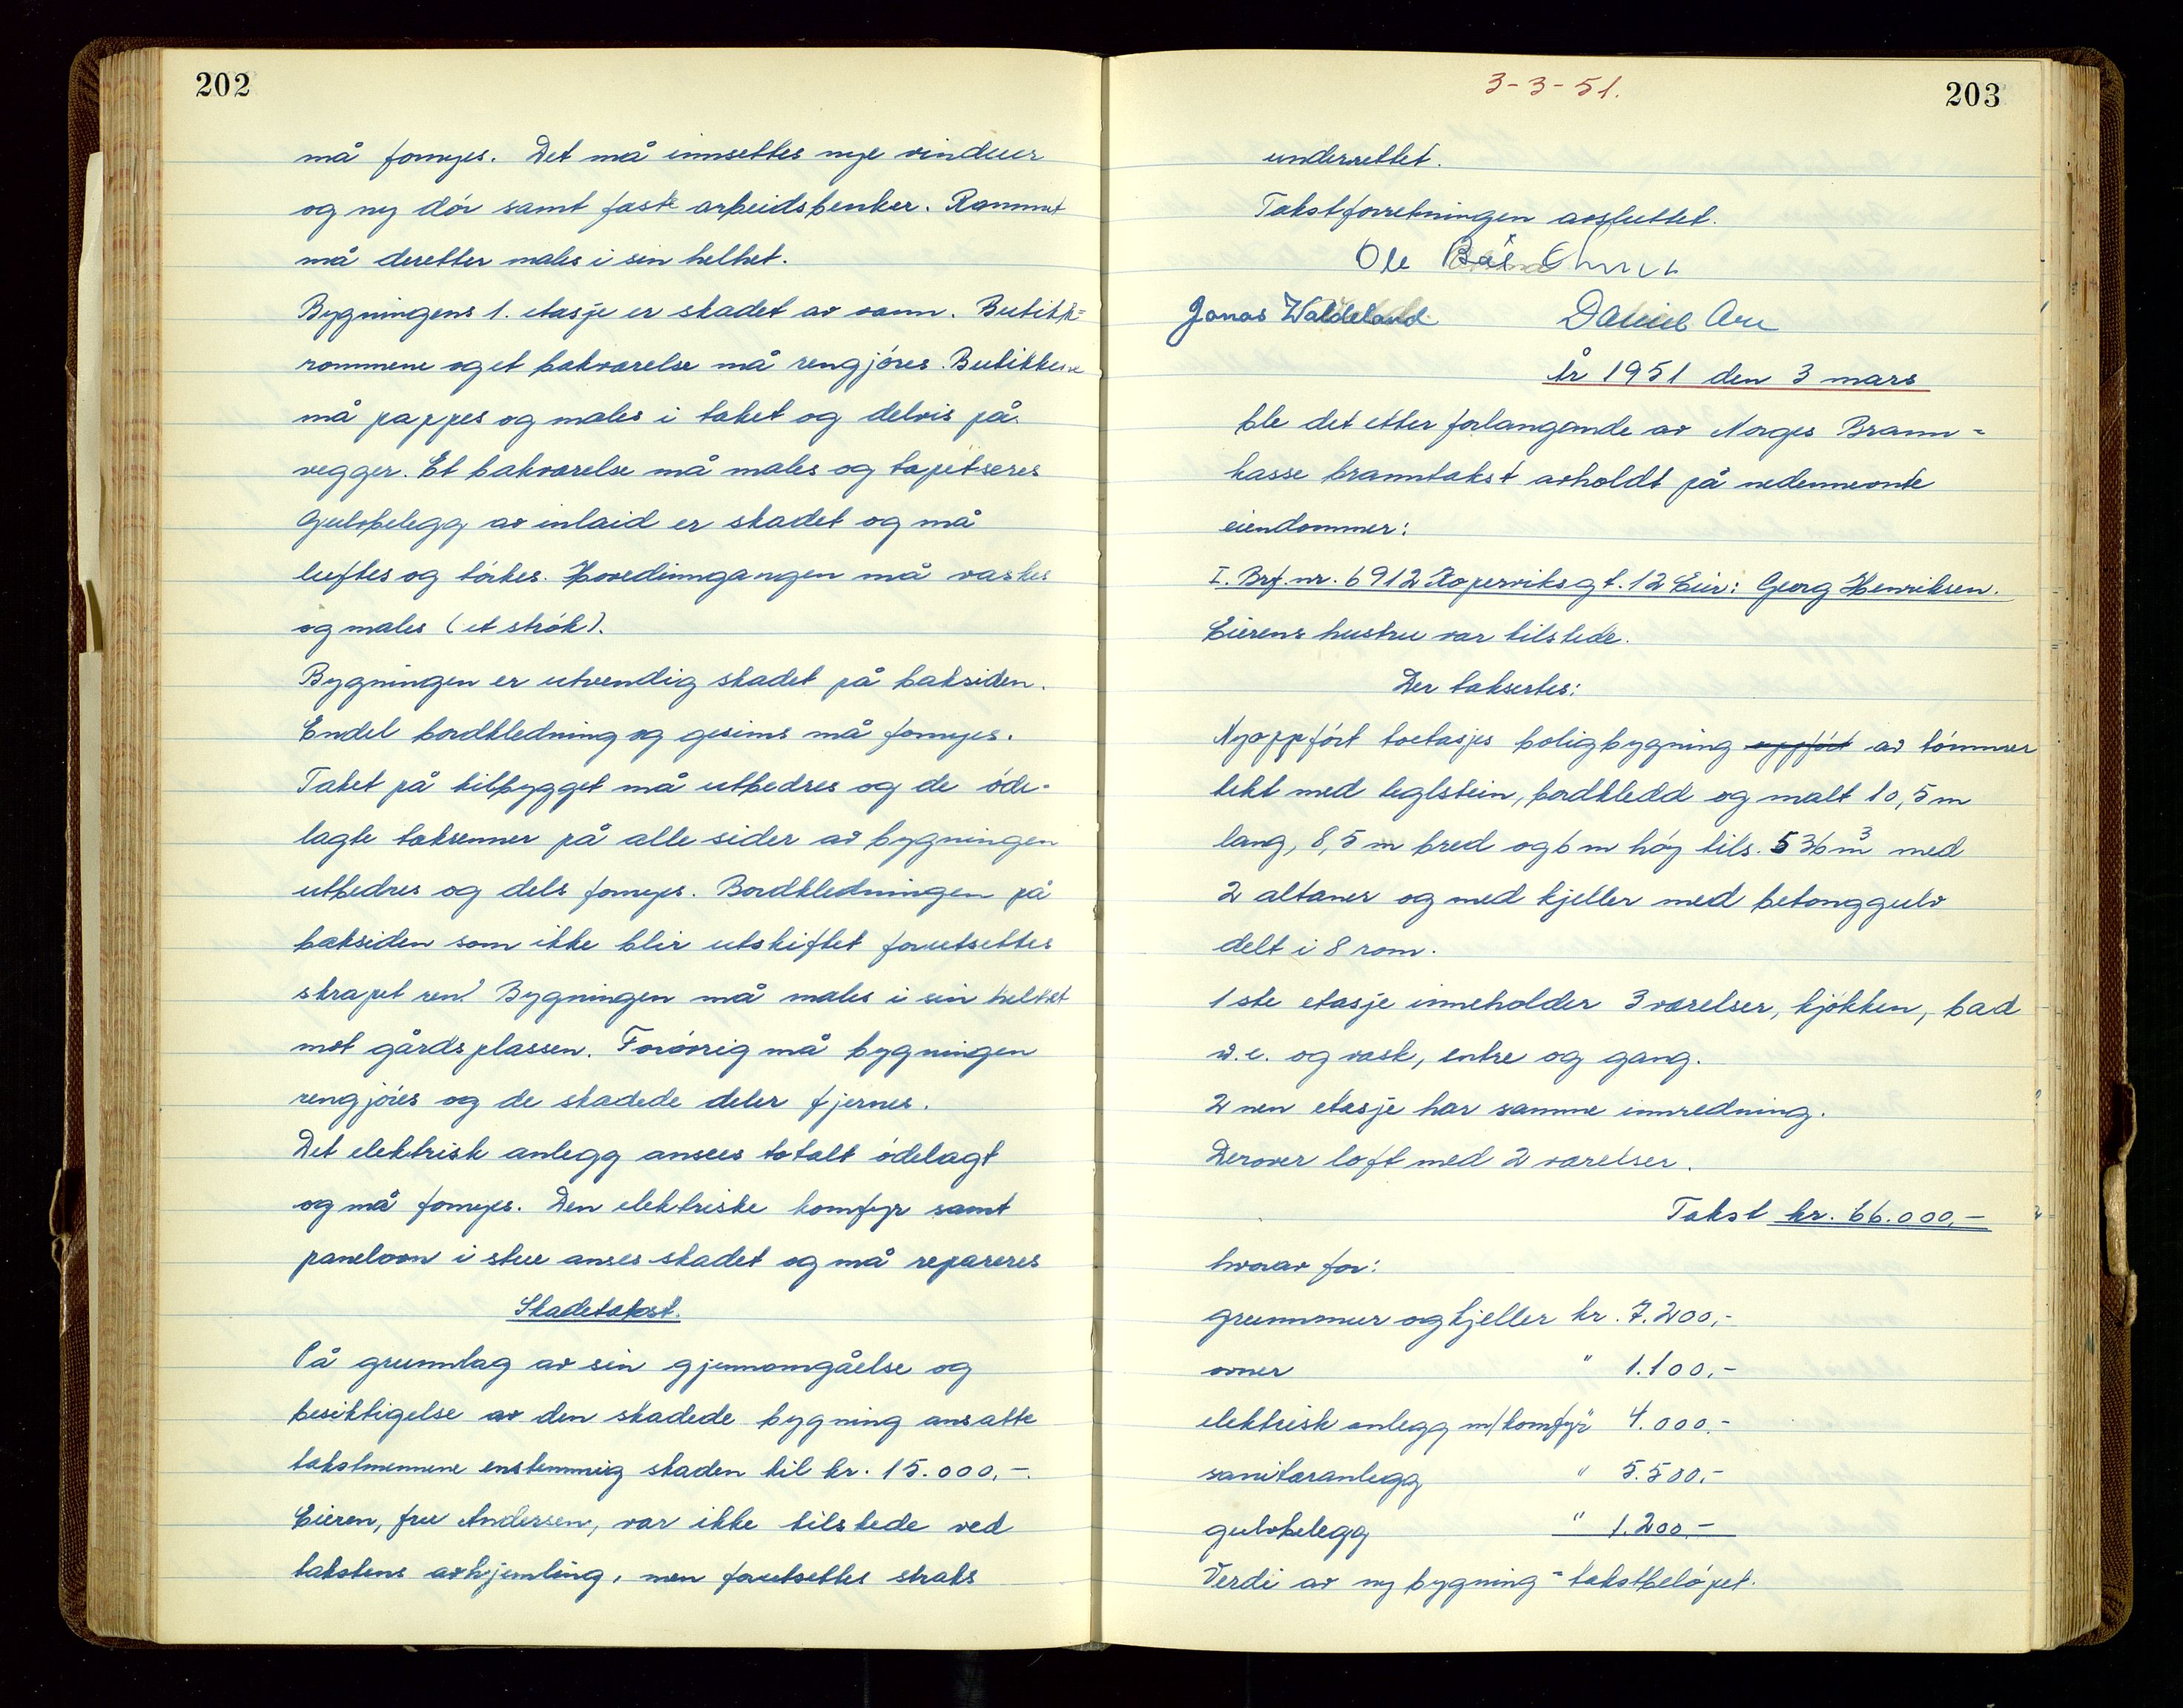 202
må fornyes. Det må innsettes nye vinduer
og ny dór samt faste arbeidsbenker. Rommet
må deretter males i sin helhet.
Bygningens 1. etasje er skadet av vann. Butikk=
rommene og et bakværelse må rengjóres. Butikkene
må pappes og males i taket og delvis på
vegger. Et bakværelse må males og tapetseres
Gulvbelegg av inlaid er skadet og må
luftes og tórkes. Hovedinngangen må vaskes
og males (et strók).
Bygningen er utvendig skadet på baksiden.
Endel bordkledning og gesims må fornyes.
Taket på tilbygget må utbedres og de óde-
lagte takrenner på alle sider av bygningen
utbedres og dels fornyes. Bordkledningen på
baksiden som ikke blir utskiftet forutsettes
skrapet ren. Bygningen må males i sin helhet
mot gårdsplassen. Foróvrig må bygningen
rengjóres og de skadede deler fjernes.
Det elektrisk anlegg ansees totalt ódelagt
og må fornyes. Den elektriske komfyr samt
panelovn i stue anses skadet og må repareres
Skadetakst.
På grunnlag av sin gjennomgåelse og
besiktigelse av den skadede bygning ansatte
takstmennene enstemmig skaden til kr. 15.000,-.
Eieren, fru Andersen, var ikke tilstede ved
takstens avhjemling, men forutsettes straks
3-3-51.
203
underrettet.
Takstforretningen avsluttet.
Ole Bår
Jonas Waldeland Daniel
År 1951 den 3 mars
ble det etter forlangende av Norges Brann=
kasse branntakst avholdt på nedennevnte
eiendommer:
I. Brf. nr. 6912 Koperviksgt. 12 Eier: Georg Henriksen.
Eierens hustru var tilstede.
Der taksertes:
Nyoppfórt toetasjes boligbygning oppfórt av tómmer
tekt med teglstein, bordkledd og malt 10,5 m
lang, 8,5 m bred og 6 m hóy tils. 536 m³ med
2 altaner og med kjeller med betonggulv
delt i 8 rom.
1 ste etasje inneholder 3 værelser, kjökken, bad
w.c. og vask, entre og gang.
2 nen etasje har samme innredning.
Derover loft med 2 værelser.
Takst kr. 66.000,-
hvorav for:
grunnmur og kjeller kr. 7.200,-
ovner " 1.100,-
elektrisk anlegg m/komfyr " 4.000,-
sanitæranlegg " 5.500,-
gulvbelegg " 1.200.-
Verdi av ny bygning = takstbelópet.